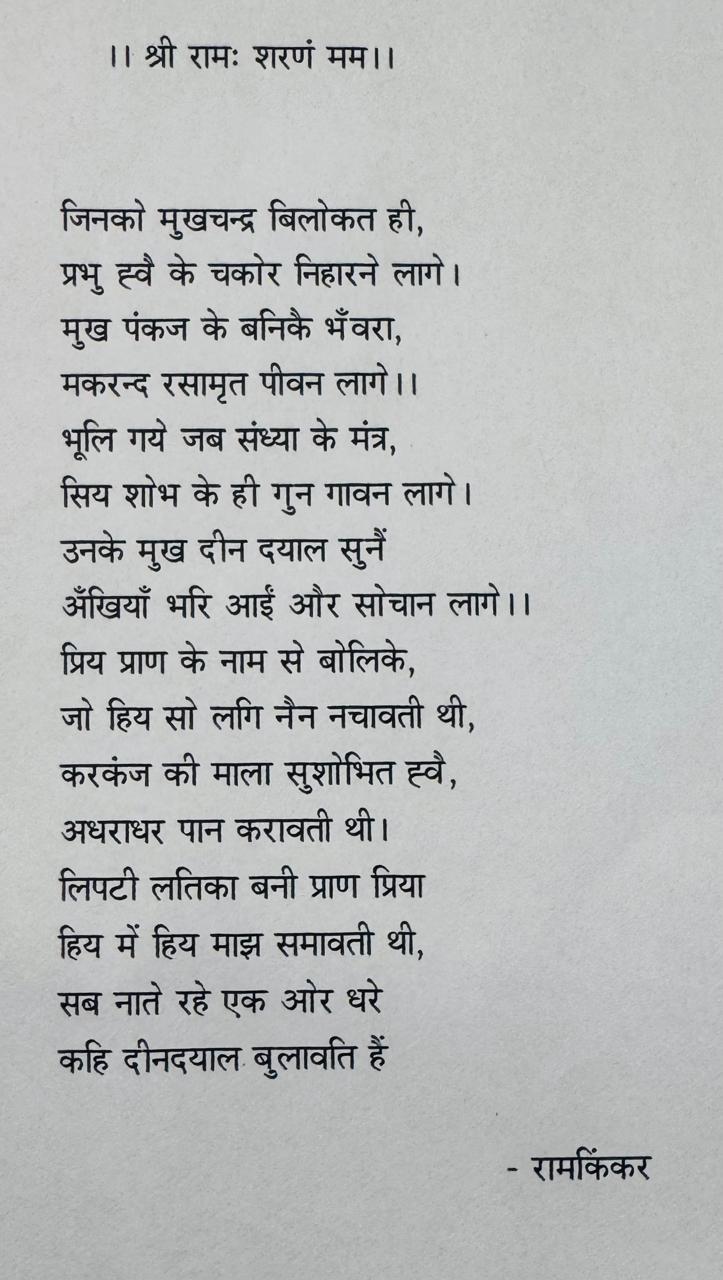 ।। श्री रामः शरणं मम।।
जिनको मुखचन्द्र बिलोकत ही,
प्रभु ह्वै के चकोर निहारने लागे।
मुख पंकज के बनिकै भँवरा,
मकरन्द रसामृत पीवन लागे।।
भूलि गये जब संध्या के मंत्र,
सिय शोभ के ही गुन गावन लागे।
उनके मुख दीन दयाल सुनैं
अँखियाँ भरि आईं और सोचान लागे।।
प्रिय प्राण के नाम से बोलिके,
जो हिय सो लगि नैन नचावती थी,
करकंज की माला सुशोभित ह्वै,
अधराधर पान करावती थी।
लिपटी लतिका बनी प्राण प्रिया
हिय में हिय माझ समावती थी,
सब नाते रहे एक ओर धरे
कहि दीनदयाल बुलावति हैं
- रामकिंकर